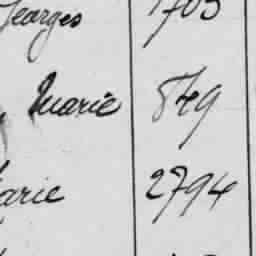 Georges 1703
, Marie 849
arie 2794